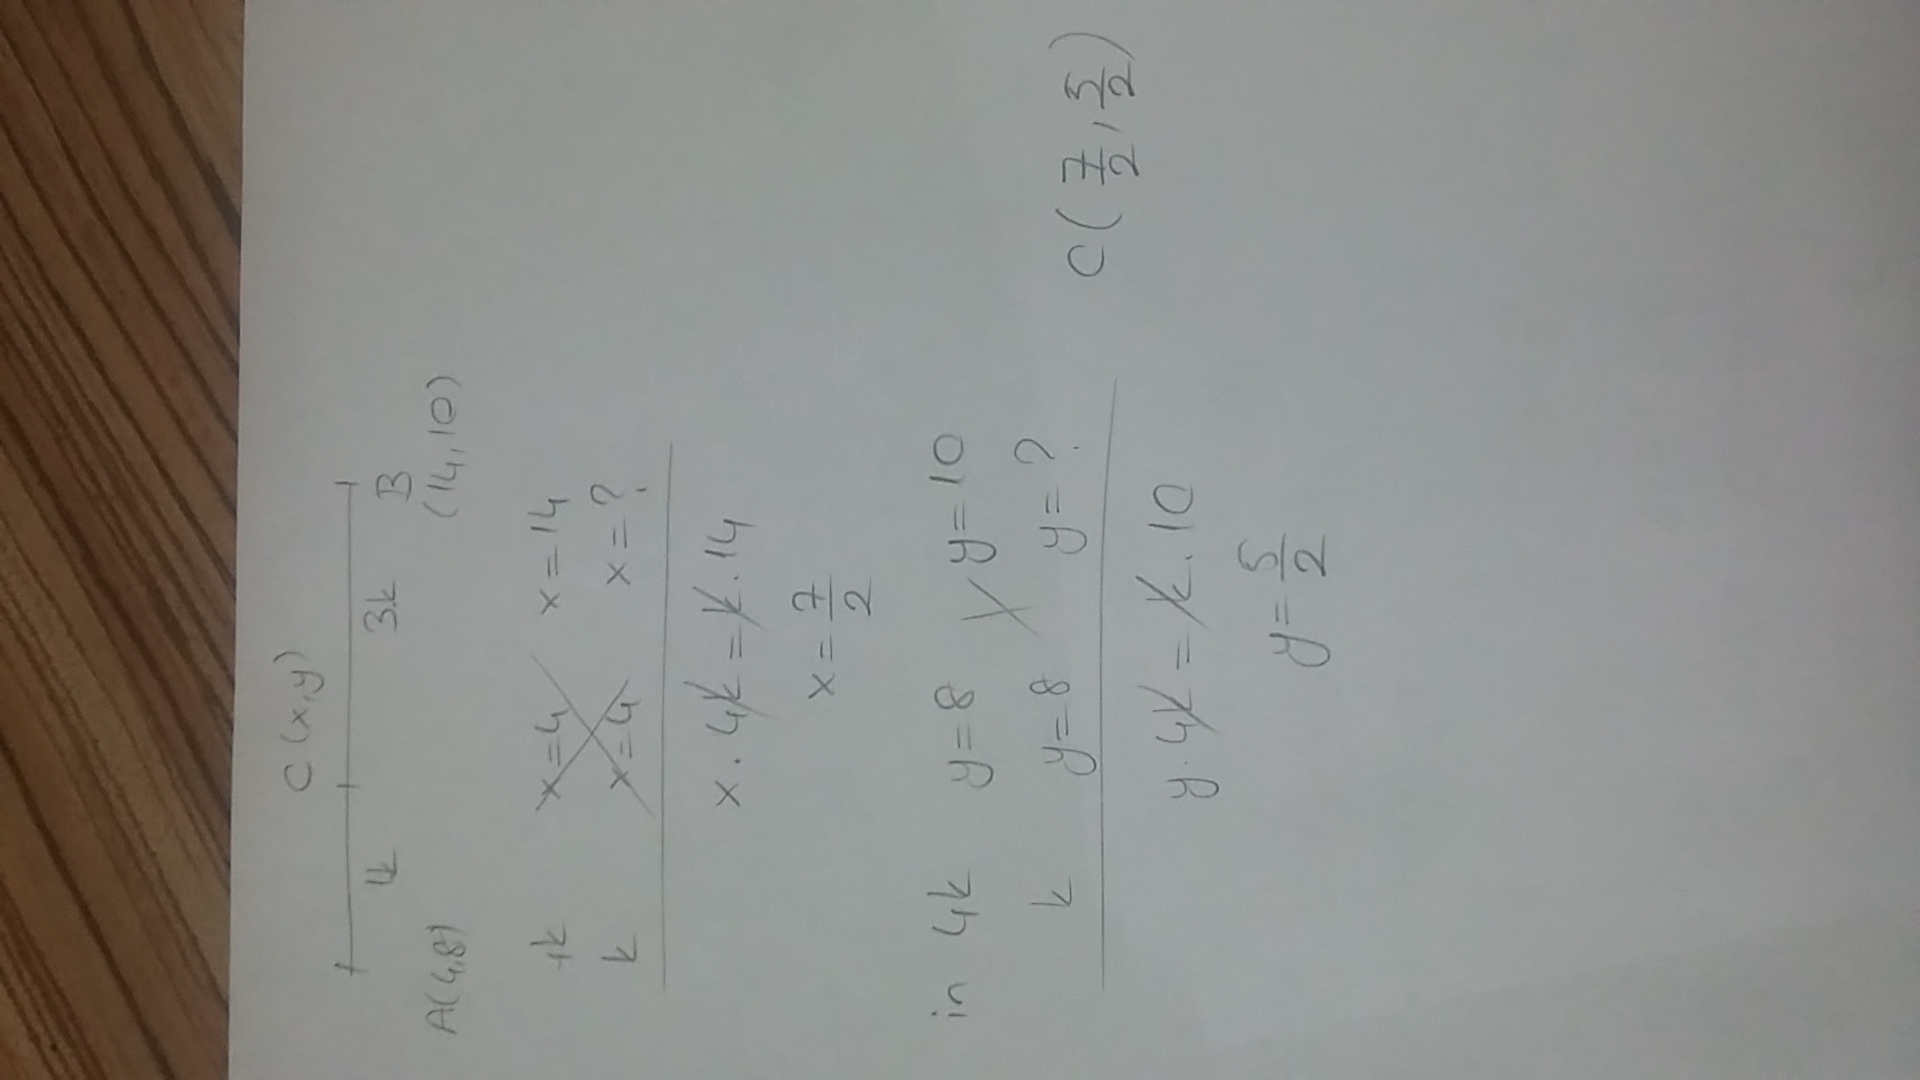 C (x,y)
1k 3k
A(4,8) B
(14,10)
4k x=4 x=14
k x=4 x=?
x . 4k = k . 14
x = 7/2
in 4k y=8 y=10
k y=8 y=?
y . 4k = k . 10
y = 5/2
C ( 7/2 , 5/2 )